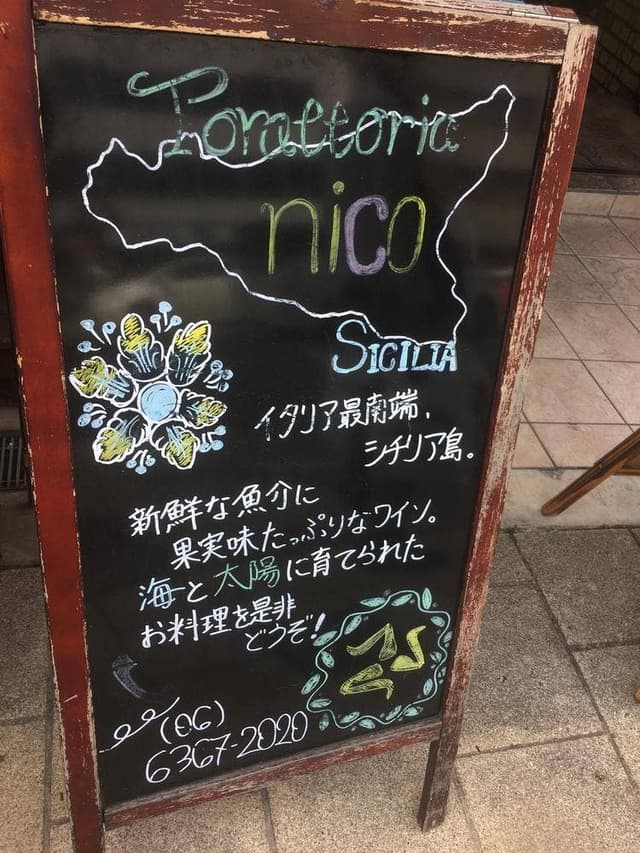 Torattoria
nico
SICILIA
イタリア最南端、
シチリア島。
新鮮な魚介に
果実味たっぷりなワイン。
海と太陽に育てられた
お料理を是非
どうぞ!
(06)
6367-2020